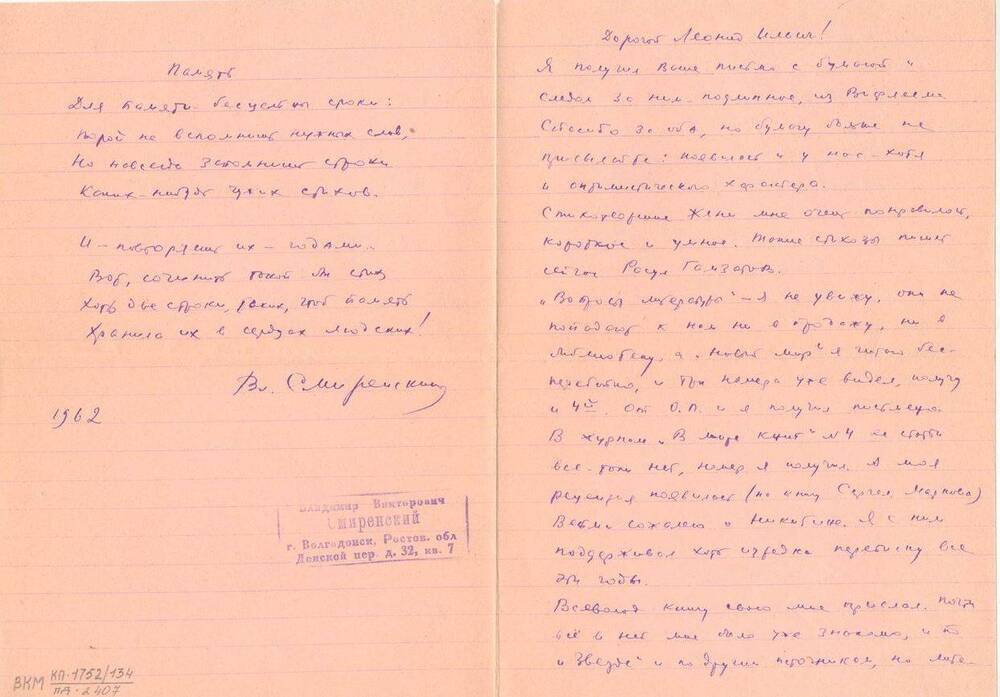 Память
Для памяти бесцельны сроки:
Порой не вспомнишь нужных слов,
Но навсегда запомнишь строки
Каких-нибудь чужих стихов.
И – повторяешь их – годами..
Вот, сочинить такой бы стих
Хоть две строки, таких, чтоб память
Хранила их в сердцах людских!
Вл. Смиренский
1962
Владимир Викторович
Смиренский
г. Волгодонск, Ростов. обл
Донской пер. д. 32, кв. 7
ВКМ КП-1752/134
ПА-2407
Дорогой Леонид Ильич!
Я получил Ваше письмо с бумагой и
следом за ним – подлинное, из
Спасибо за оба, но бумагу больше не
присылайте: появилась и у нас – хотя
и оптимистического характера.
Стихотворение Жени мне очень понравилось,
короткое и умное. Такие стихи пишет
сейчас Расул Гамзатов.
„Вопросы литературы“ – я не увижу, они не
попадают к нам ни в продажу, ни в
библиотеку, а „Новый мир“ я читаю бес-
перебойно, и три номера уже видел, получу
и 4й. От О.П. и я получил письмецо.
В журнале „В мире книг“ № 4 её статьи
все-таки нет, номер я получил. А моя
рецензия появилась (на книгу Сергея Маркова)
Весьма сожалею о Никитине. Я с ним
поддерживал хоть изредка переписку все
эти годы.
Всеволод книгу свою мне прислал. Почти
всё в ней мне было уже знакомо, и по
и „Звезде“ и по другим источникам, но